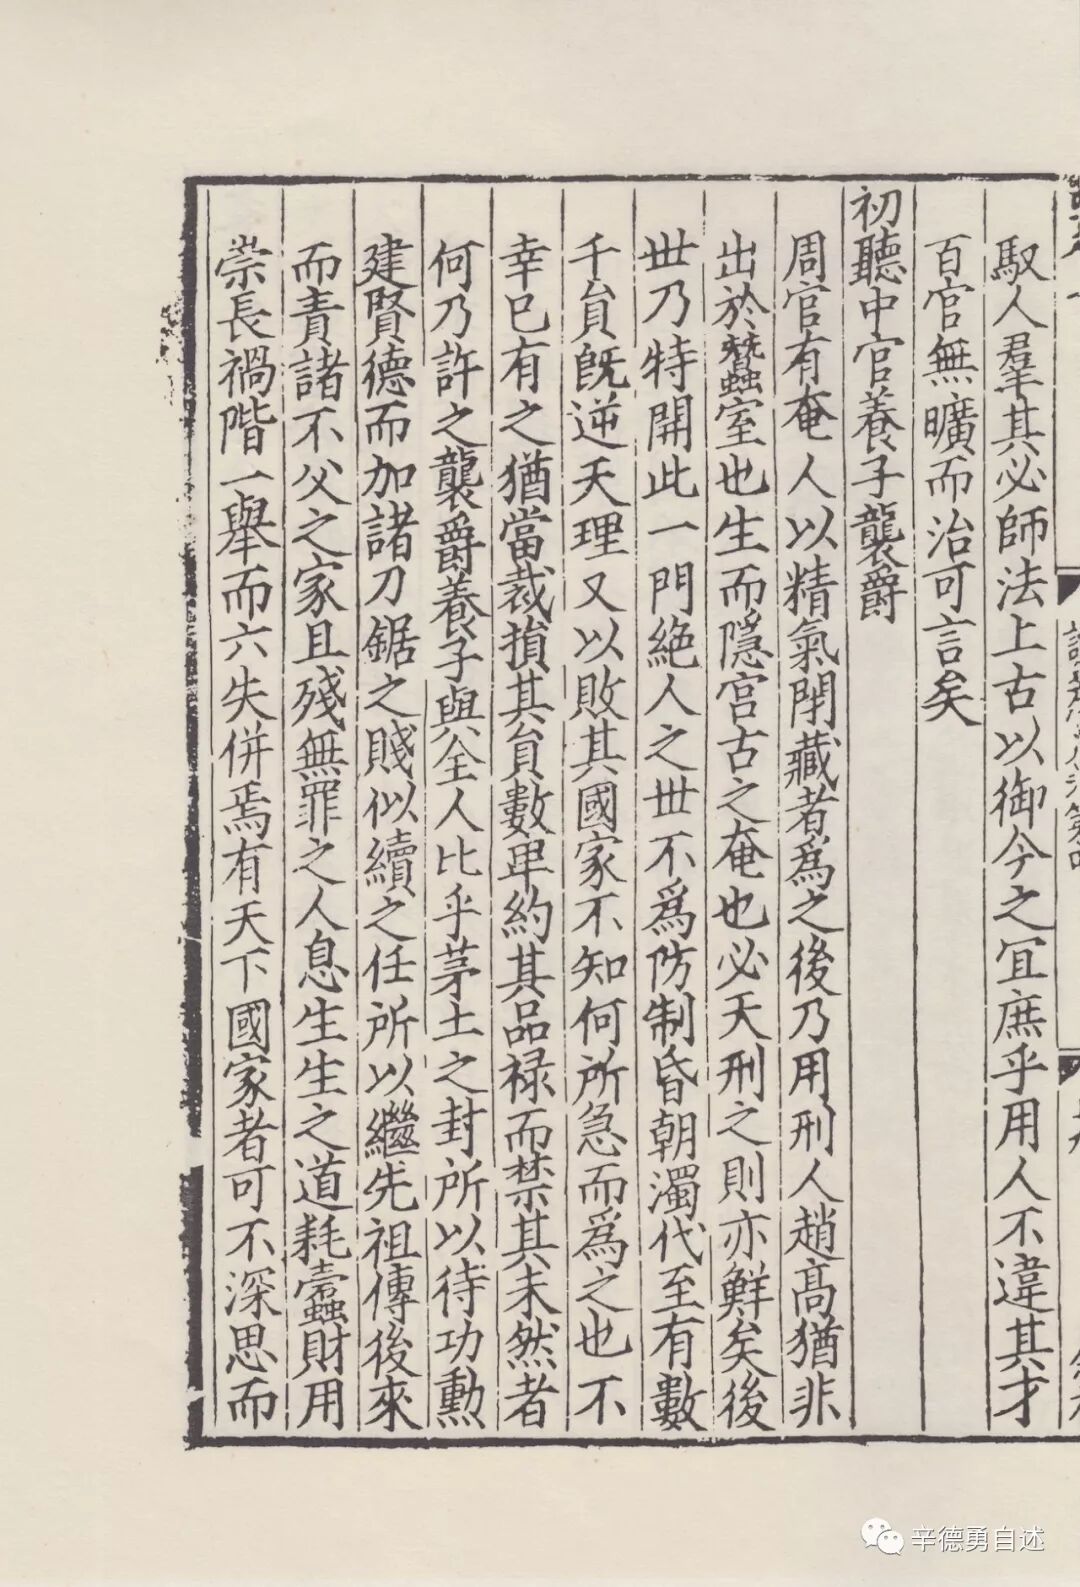 馭人羣其必師法上古以御今之冝庶乎用人不違其才
百官無曠而治可言矣
初聽中官養子襲爵
周官有奄人以精氣閉藏者為之後乃用刑人趙高猶非
出於蠶室也生而隱宫古之奄也必天刑之則亦鮮矣後
丗乃特開此一門絕人之丗不爲防制昏朝濁代至有數
千貟旣逆天理又以敗其國家不知何所急而爲之也不
幸已有之猶當裁損其貟數卑約其品禄而禁其未然者
何乃許之襲爵養子與全人比乎茅土之封所以待功勲
建賢德而加諸刀鋸之賤似續之任所以繼先祖傳後來
而責諸不父之家且殘無罪之人息生生之道耗蠹財用
崇長禍階一舉而六失併焉有天下國家者可不深思而
辛德勇自述